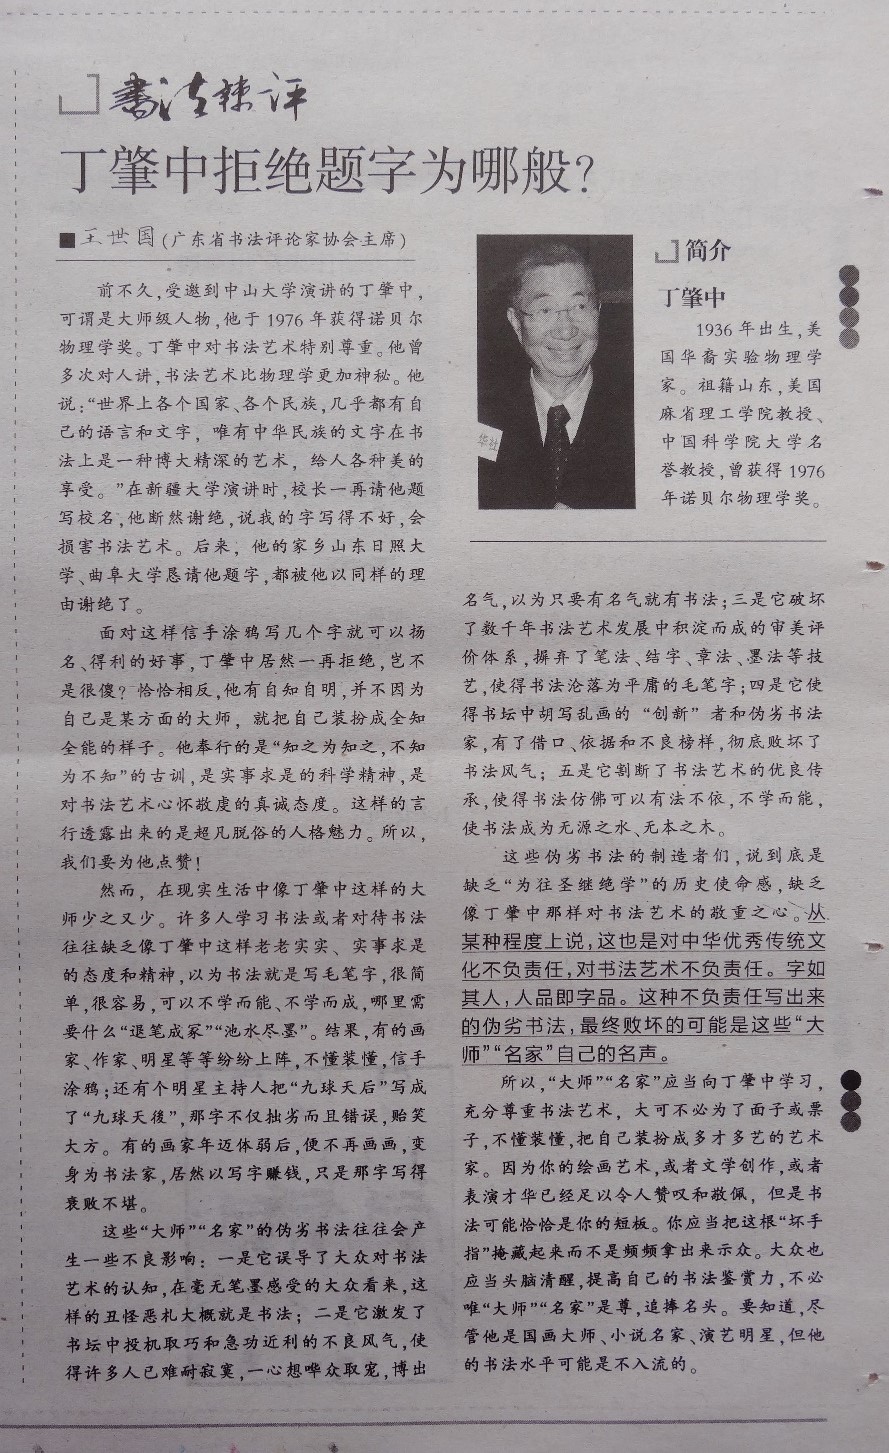 书法辣评
丁肇中拒绝题字为哪般？
■王世国(广东省书法评论家协会主席)
前不久,受邀到中山大学演讲的丁肇中,
可谓是大师级人物,他于1976年获得诺贝尔
物理学奖。丁肇中对书法艺术特别尊重。他曾
多次对人讲,书法艺术比物理学更加神秘。他
说:“世界上各个国家、各个民族,几乎都有自
己的语言和文字，唯有中华民族的文字在书
法上是一种博大精深的艺术，给人各种美的
享受。”在新疆大学演讲时,校长一再请他题
写校名,他断然谢绝,说我的字写得不好,会
损害书法艺术。后来，他的家乡山东日照大
学、曲阜大学恳请他题字,都被他以同样的理
由谢绝了。
面对这样信手涂鸦写几个字就可以扬
名、得利的好事,丁肇中居然一再拒绝,岂不
是很傻？恰恰相反,他有自知自明,并不因为
自己是某方面的大师，就把自己装扮成全知
全能的样子。他奉行的是“知之为知之,不知
为不知”的古训,是实事求是的科学精神,是
对书法艺术心怀敬虔的真诚态度。这样的言
行透露出来的是超凡脱俗的人格魅力。所以,
我们要为他点赞！
然而，在现实生活中像丁肇中这样的大
师少之又少。许多人学习书法或者对待书法
往往缺乏像丁肇中这样老老实实、实事求是
的态度和精神,以为书法就是写毛笔字,很简
单,很容易,可以不学而能、不学而成,哪里需
要什么“退笔成冢”“池水尽墨”。结果,有的画
家、作家、明星等等纷纷上阵,不懂装懂,信手
涂鸦;还有个明星主持人把“九球天后”写成
了“九球天後”,那字不仅拙劣而且错误,贻笑
大方。有的画家年迈体弱后,便不再画画,变
身为书法家,居然以写字赚钱,只是那字写得
衰败不堪。
这些“大师”“名家”的伪劣书法往往会产
生一些不良影响：一是它误导了大众对书法
艺术的认知,在毫无笔墨感受的大众看来,这
样的丑怪恶札大概就是书法；二是它激发了
书坛中投机取巧和急功近利的不良风气,使
得许多人已难耐寂寞,一心想哗众取宠,博出
简介
丁肇中
1936年出生,美
国华裔实验物理学
家。祖籍山东,美国
麻省理工学院教授、
中国科学院大学名
誉教授,曾获得1976
年诺贝尔物理学奖。
华社
名气,以为只要有名气就有书法;三是它破坏
了数千年书法艺术发展中积淀而成的审美评
价体系,摒弃了笔法、结字、章法、墨法等技
艺,使得书法沦落为平庸的毛笔字;四是它使
得书坛中胡写乱画的“创新”者和伪劣书法
家,有了借口、依据和不良榜样,彻底败坏了
书法风气；五是它割断了书法艺术的优良传
承,使得书法仿佛可以有法不依,不学而能,
使书法成为无源之水、无本之木。
这些伪劣书法的制造者们,说到底是
缺乏“为往圣继绝学”的历史使命感,缺乏
像丁肇中那样对书法艺术的敬重之心。从
某种程度上说,这也是对中华优秀传统文
化不负责任,对书法艺术不负责任。字如
其人,人品即字品。这种不负责任写出来
的伪劣书法,最终败坏的可能是这些“大
师”“名家”自己的名声。
所以,“大师”“名家”应当向丁肇中学习,
充分尊重书法艺术，大可不必为了面子或票
子,不懂装懂,把自己装扮成多才多艺的艺术
家。因为你的绘画艺术,或者文学创作,或者
表演才华已经足以令人赞叹和敬佩，但是书
法可能恰恰是你的短板。你应当把这根“坏手
指”掩藏起来而不是频频拿出来示众。大众也
应当头脑清醒,提高自己的书法鉴赏力,不必
唯“大师”“名家”是尊,追捧名头。要知道,尽
管他是国画大师、小说名家、演艺明星,但他
的书法水平可能是不入流的。